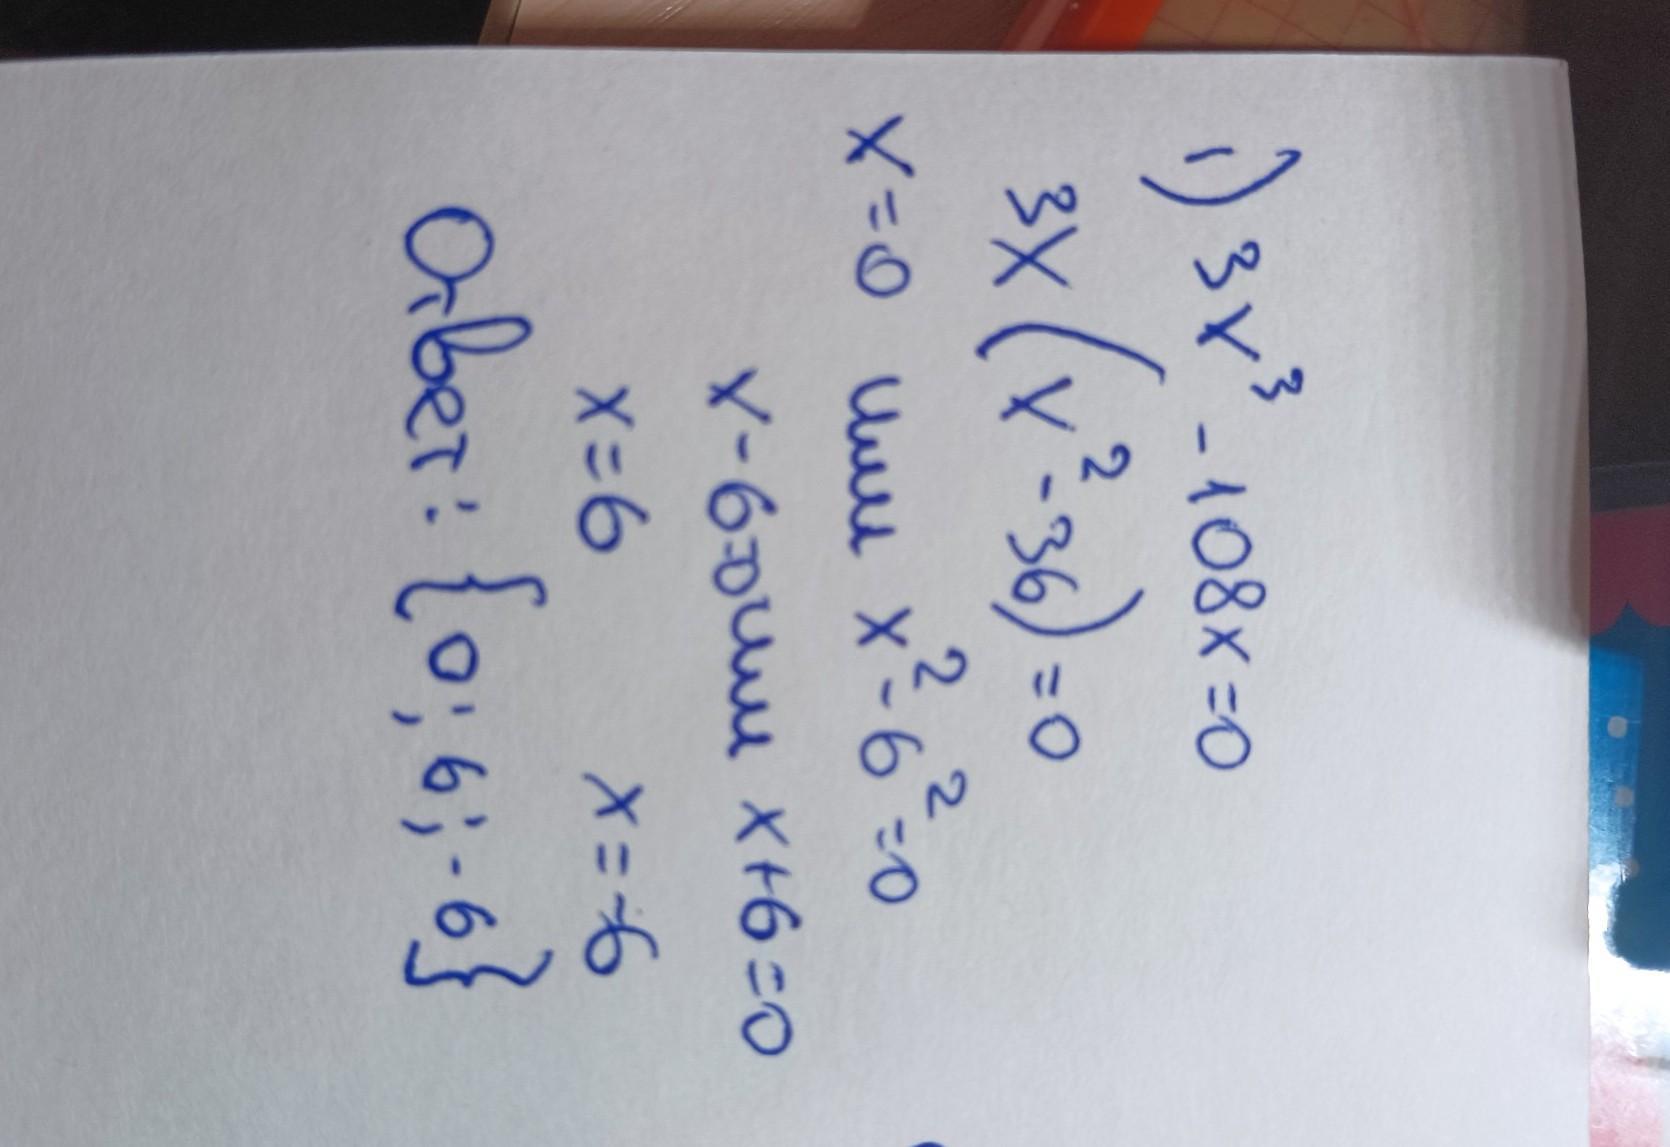 1) 3x³ - 108x = 0
3x (x² - 36) = 0
x = 0 или x² - 6² = 0
x - 6 = 0 или x + 6 = 0
x = 6 x = -6
Ответ: {0; 6; -6}